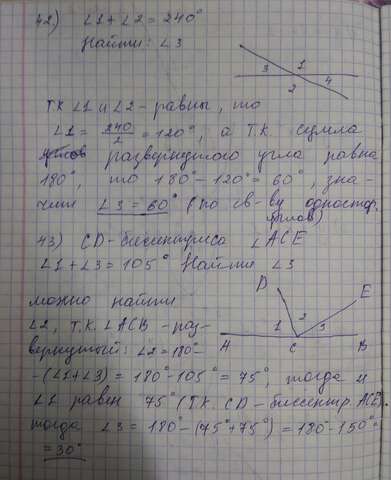 42) ∠1+∠2=240°
Найти: ∠3
3 1
2 4
Т.К ∠1 и ∠2 - равны, то
∠1 = 240/2 = 120°, а Т.К сумма
углов развернутого угла равна
180°, то 180°-120°=60°, зна-
чит ∠3=60° (по св-ву одностор.
углов)
43) CD-биссектриса ∠ACE
∠1+∠3=105° Найти ∠3
D
E
1 2 3
A C B
можно найти
∠2, т.к. ∠ACB - раз-
вернутый: ∠2=180°-
-(∠1+∠3)=180°-105°=75°, тогда и
∠1 равен 75° (Т.К. CD-биссектр ACE).
тогда ∠3=180°-(75°+75°)=180°-150°=
=30°